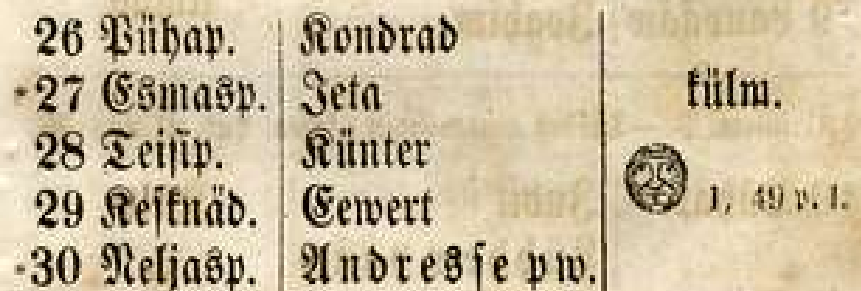 26 Pühap. Kondrad
27 Esmasp. Jeta külm.
28 Teisip. Künter
29 Kesknäd. Eewert 1, 49 p. l.
30 Neljasp. Andresse pw.